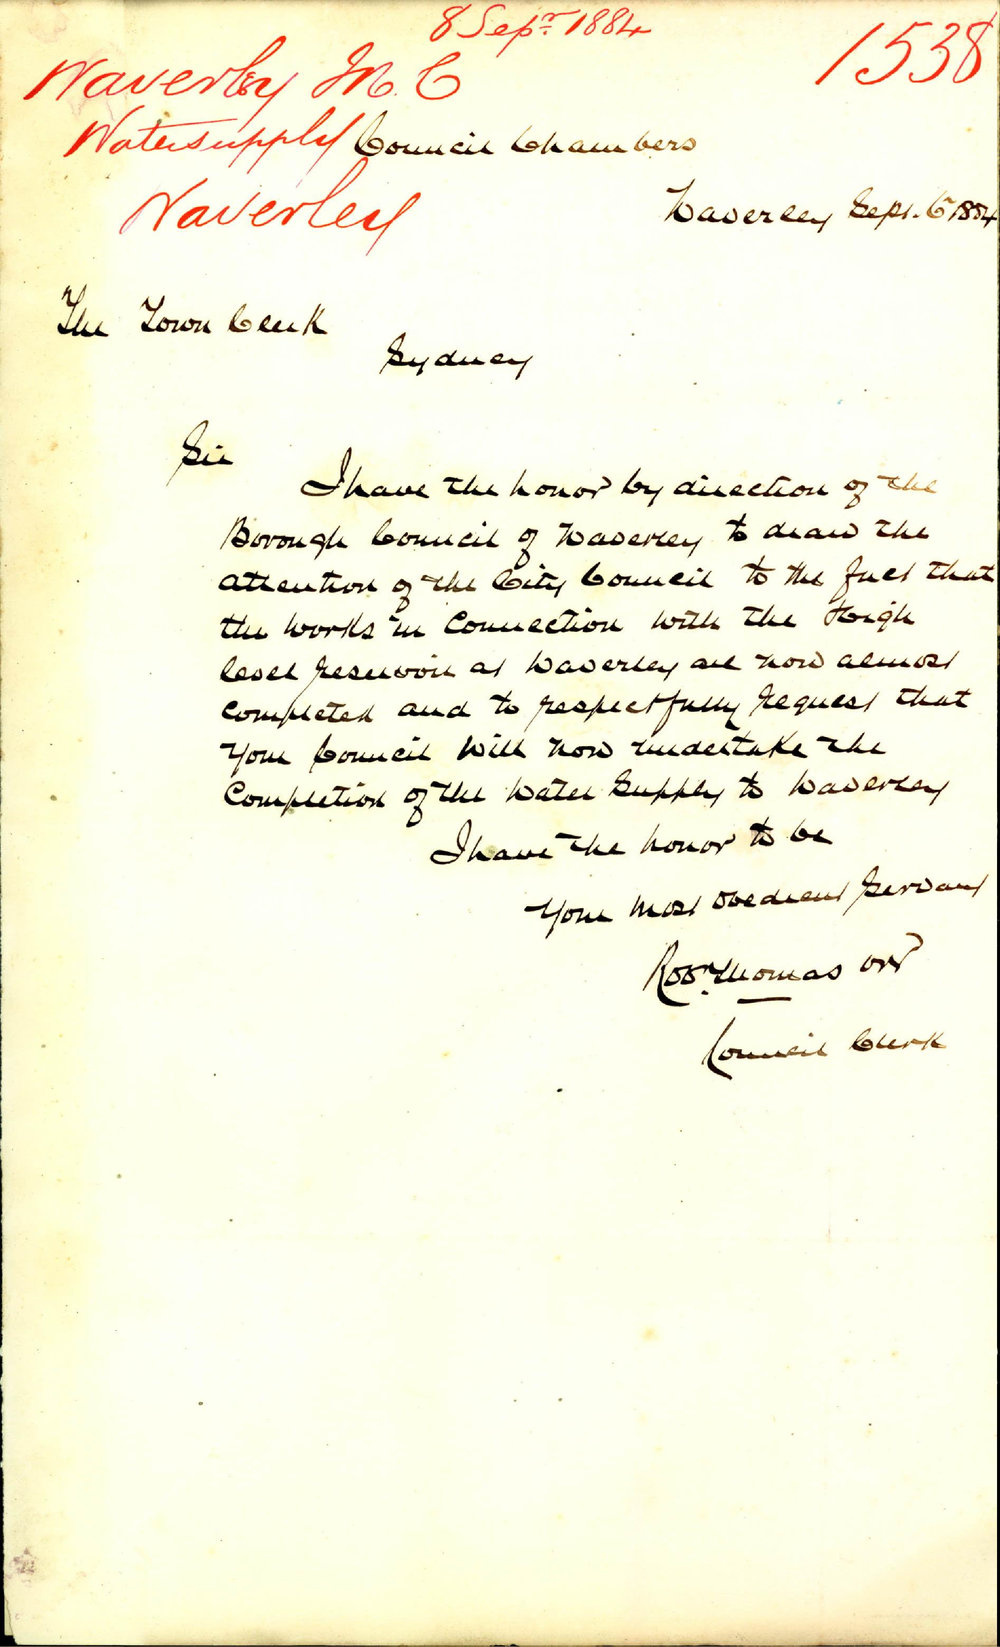 8 Sepr. 1884
1538
Waverley M. C
Watersupply
Waverley
Council Chambers
Waverley Sept. 6 1884
The Town Clerk
Sydney
Sir
I have the honor by direction of the
Borough Council of Waverley to draw the
attention of the City Council to the fact that
the works in connection with the High
level reservoir at Waverley are now almost
completed and to respectfully request that
your Council will now undertake the
completion of the Water Supply to Waverley
I have the honor to be
Your Most obedient Servant
Robt. Thomas Orr
Council Clerk